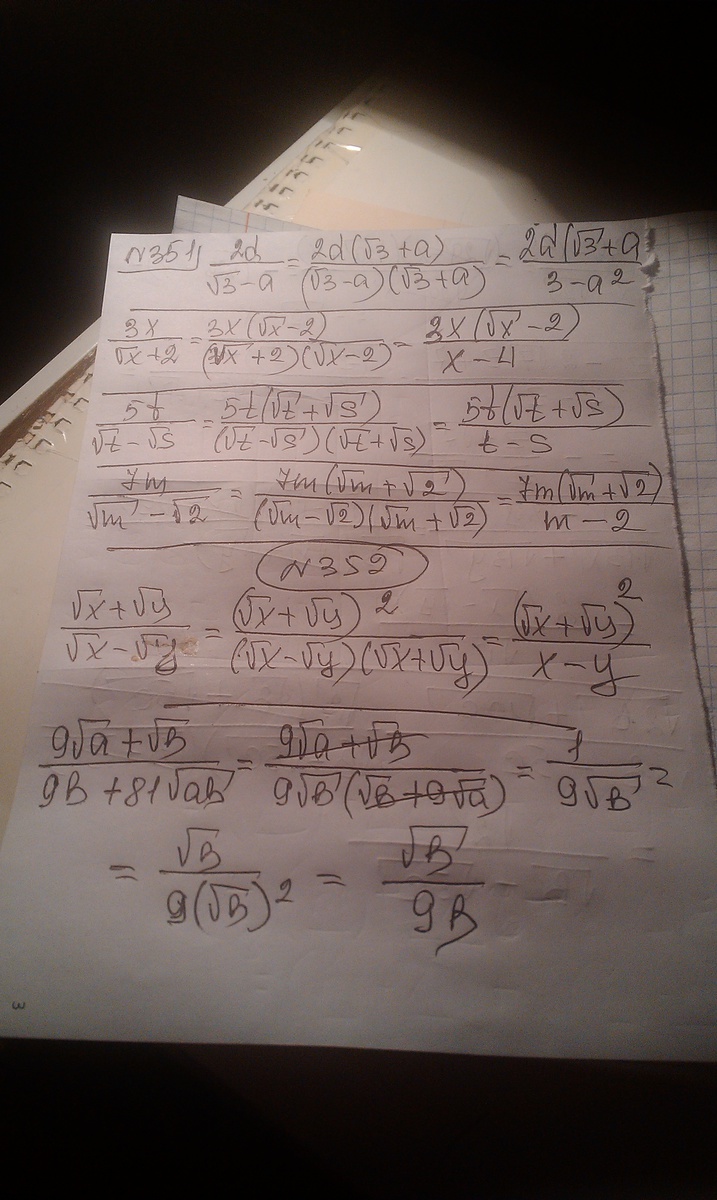 N351) 2d/(√3-a) = 2d(√3+a)/((√3-a)(√3+a)) = 2d(√3+a/(3-a²)
3x/(√x+2) = 3x(√x-2)/((√x+2)(√x-2)) = 3x(√x-2)/(x-4)
5t/(√t-√s) = 5t(√t+√s)/((√t-√s)(√t+√s)) = 5t(√t+√s)/(t-s)
7m/(√m-√2) = 7m(√m+√2)/((√m-√2)(√m+√2)) = 7m(√m+√2)/(m-2)
N352
(√x+√y)/(√x-√y) = (√x+√y)²/((√x-√y)(√x+√y)) = (√x+√y)²/(x-y)
(9√a+√b)/(9b+81√ab) = (9√a+√b)/(9√b(√b+9√a)) = 1/(9√b) =
= √b/(9(√b)²) = √b/(9b)